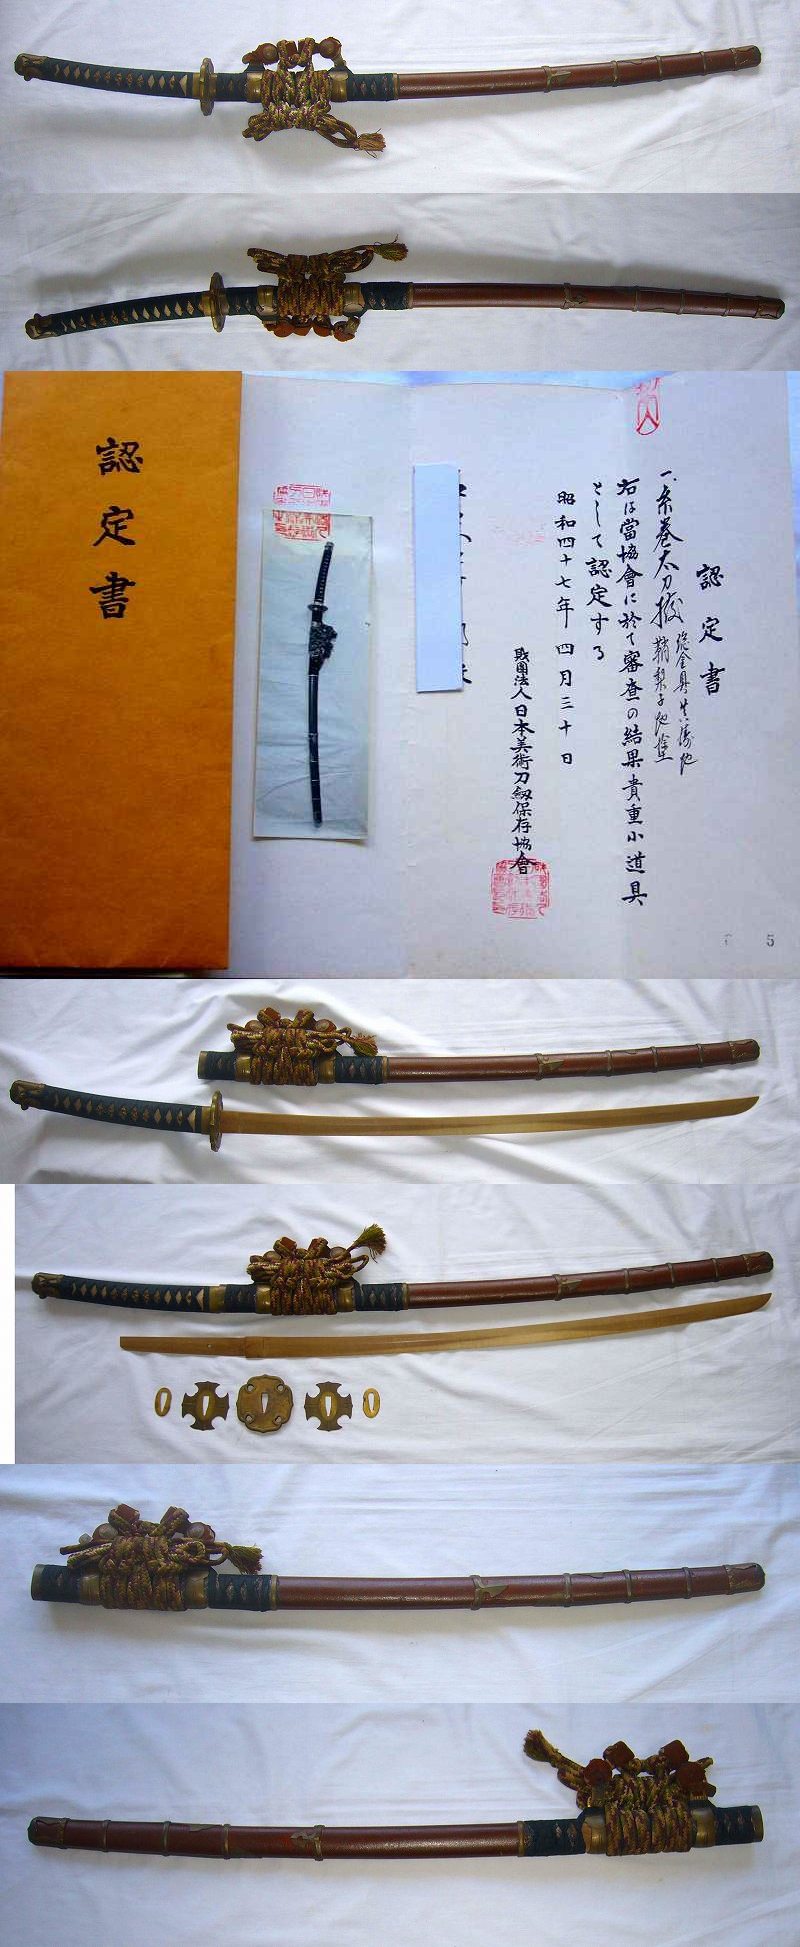 認定書
認定書
一、糸巻太刀拵
総金具真鍮地
鞘梨子地塗
右は當協會に於て審査の結果貴重小道具
として認定する
昭和四十七年四月三十日
財團法人日本美術刀剣保存協會
5